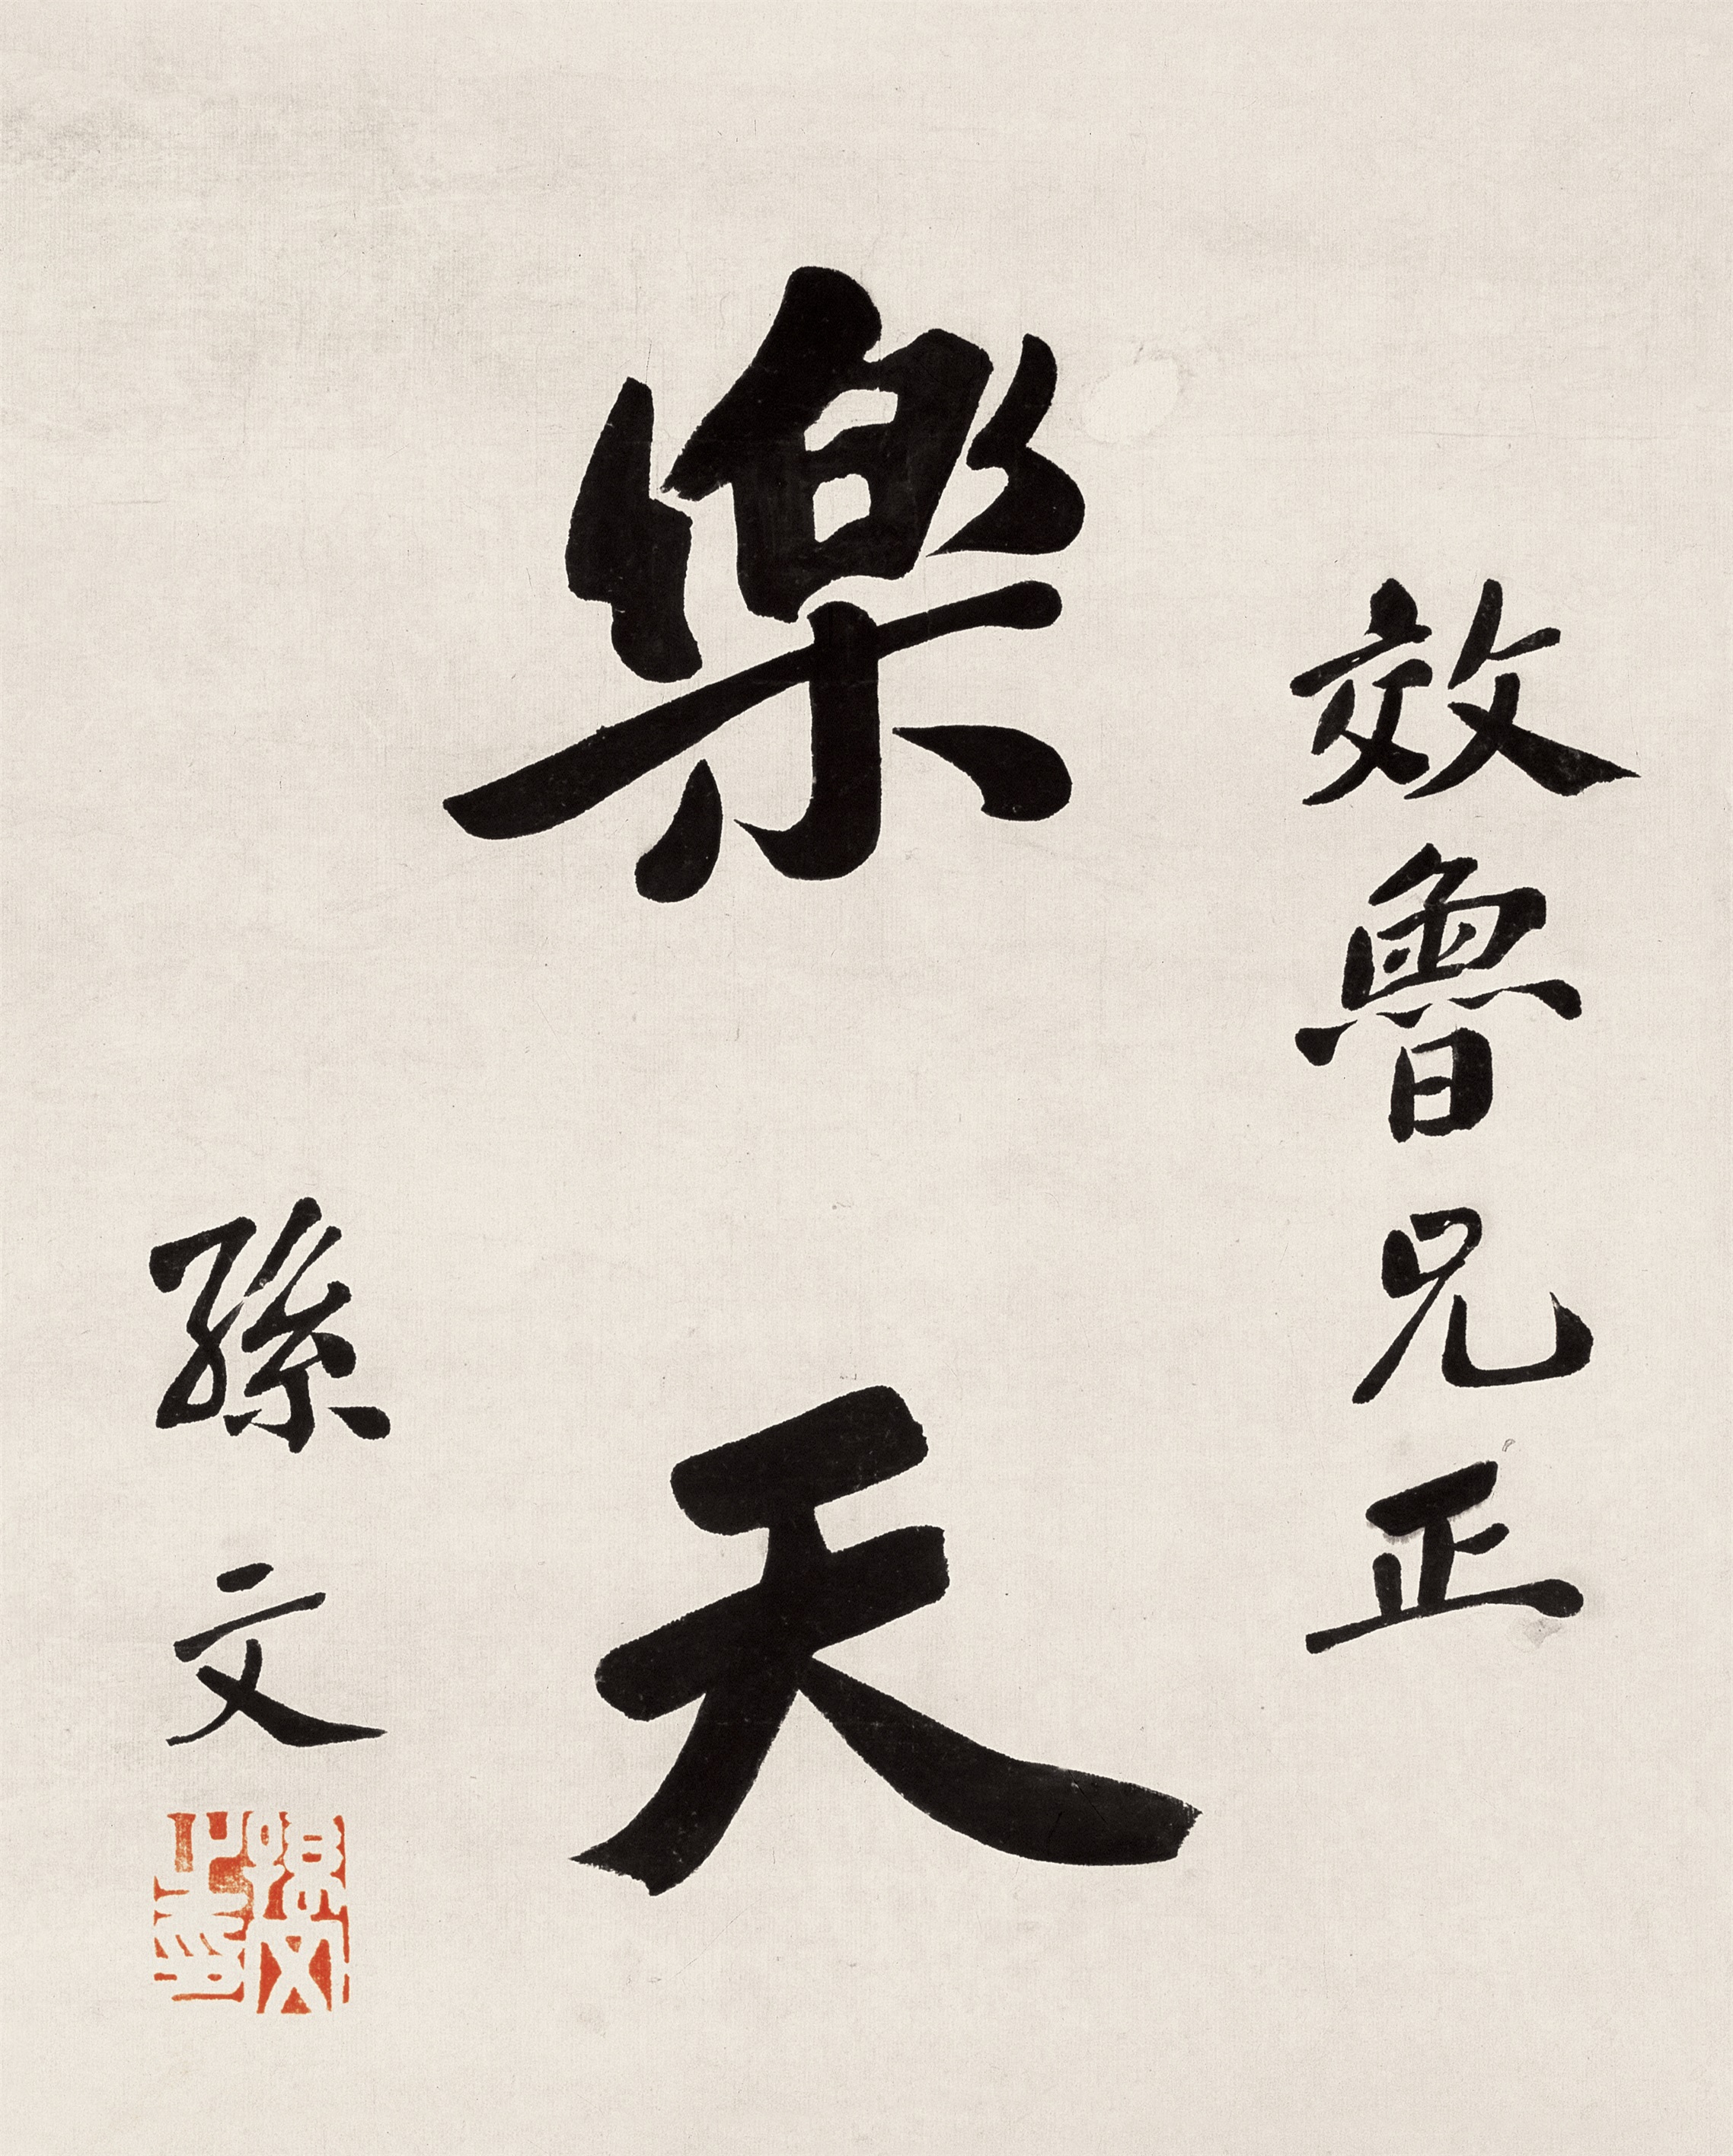 效魯兄正
樂天
孫文
孫文之印